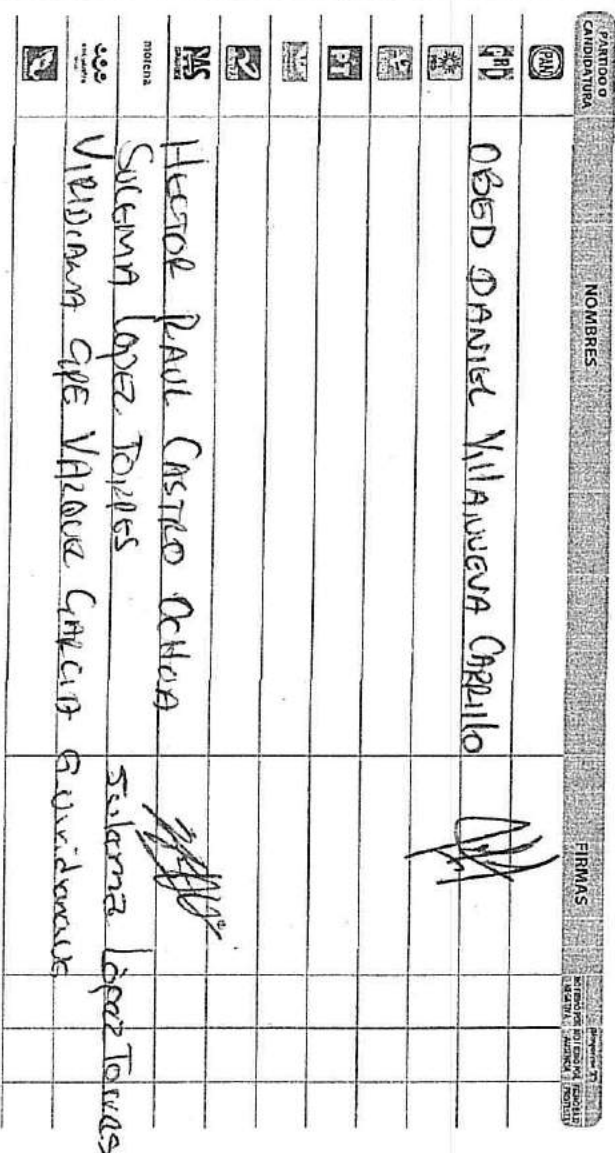 PARTIDO O CANDIDATURA NOMBRES FIRMAS
PAN
PRI
OBED DANIEL VILLANUEVA CARRILLO
PRD
PT
PAS
HECTOR RAUL CASTRO OCHOA
morena
SULEMA LOPEZ TORRES Sulema López Torres
VIRIDIANA GPE VAZQUEZ GARCIA